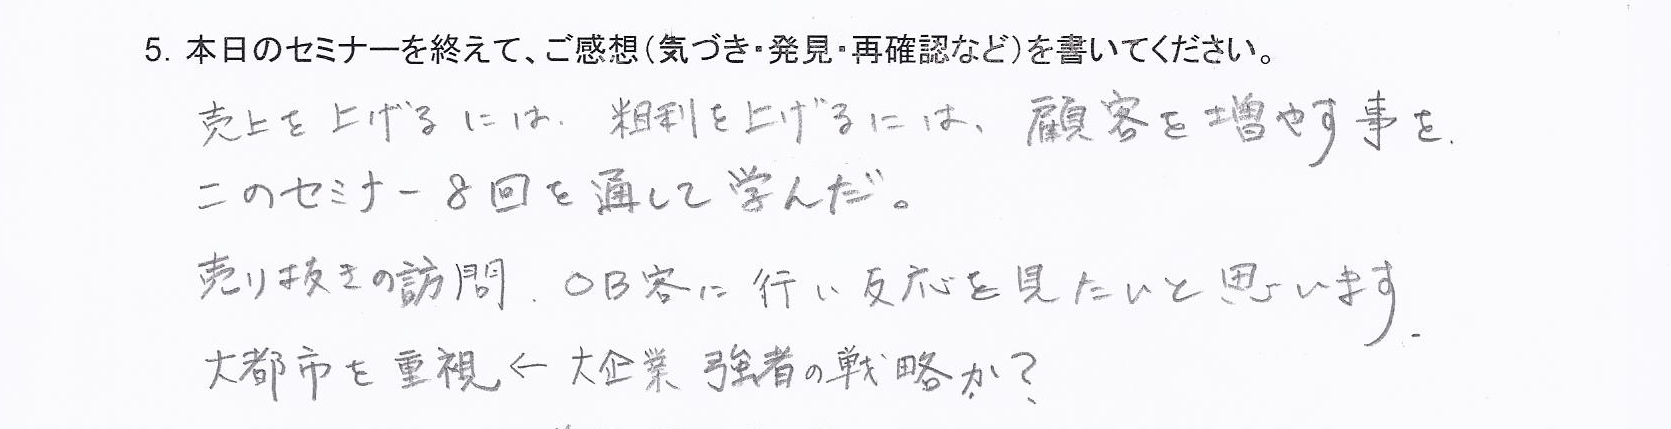 5. 本日のセミナーを終えて、ご感想(気づき・発見・再確認など)を書いてください。
売上を上げるには、粗利を上げるには、顧客を増やす事を、
このセミナー8回を通して学んだ。
売り抜きの訪問、OB客に行い反応を見たいと思います。
大都市を重視←大企業 強者の戦略か?